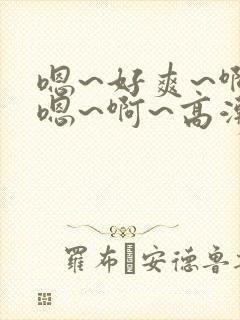 嗯~好爽~啊
嗯~啊~高潮
羅布 安德魯